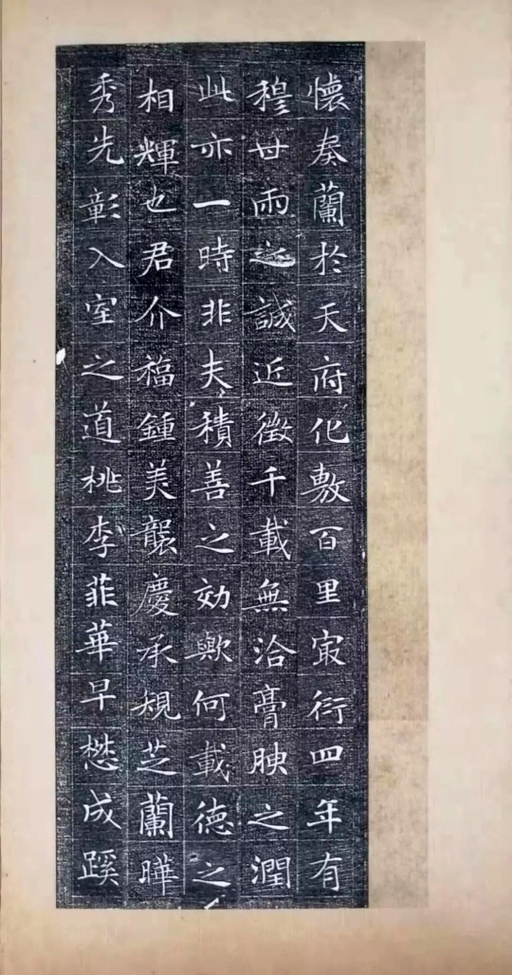 懐奏蘭於天府化敷百里宼衍四年有
穆丗雨之誠近徴千載無洽膏腴之潤
此亦一時非夫積善之効歟何載德之
相輝也君介福鍾美襲慶承規芝蘭曄
秀先彰入室之道桃李菲華早楙成蹊